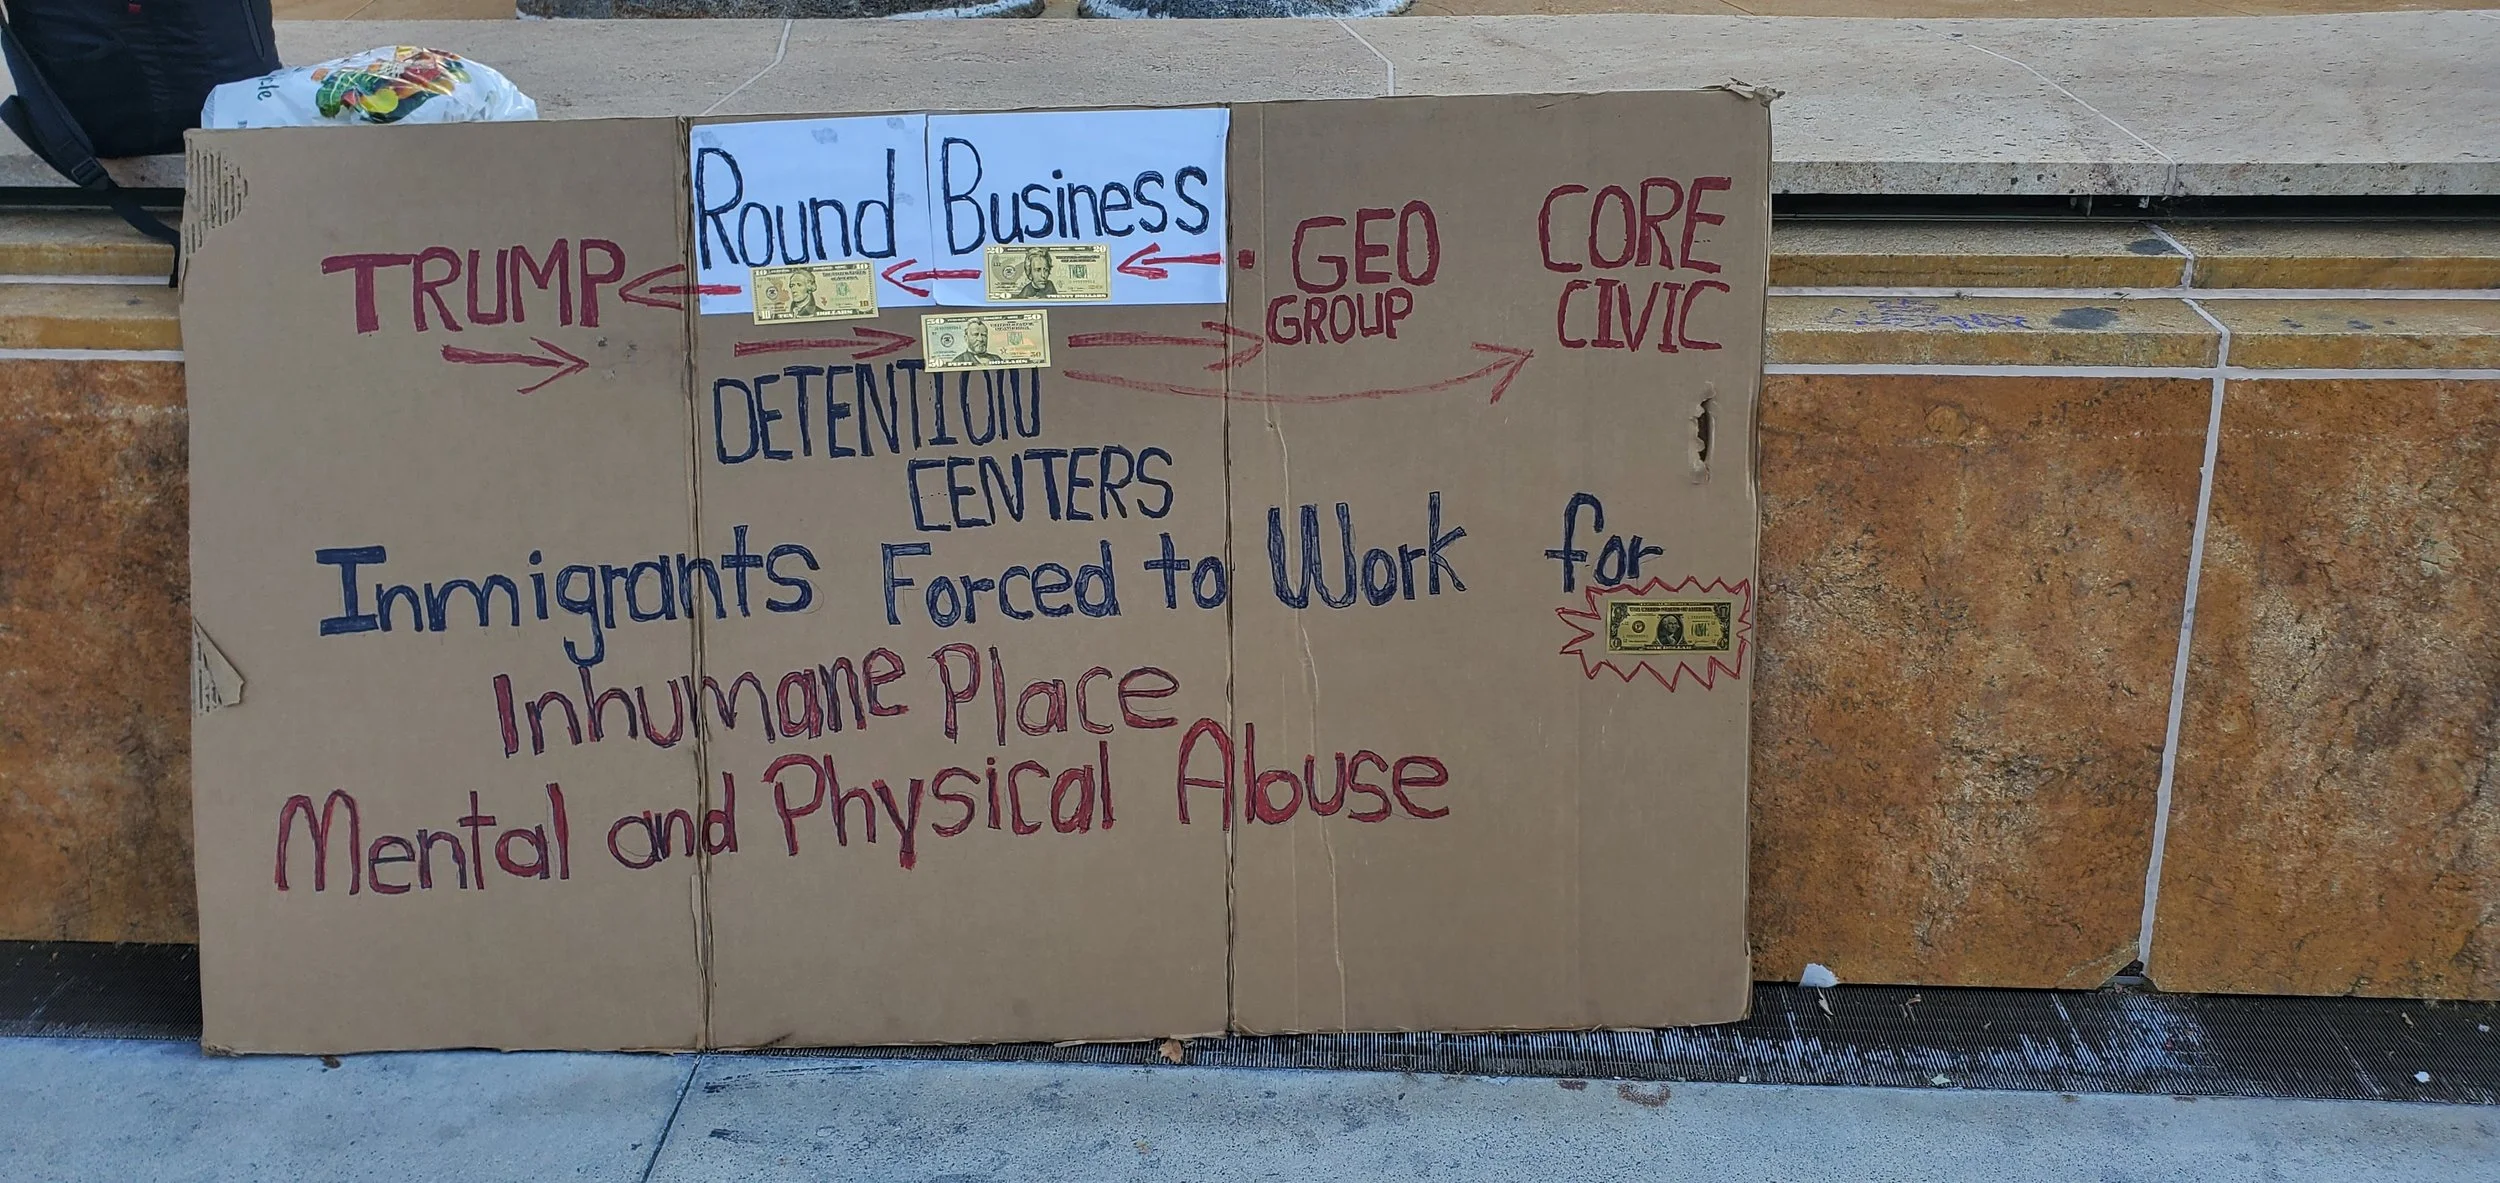 Round Business
TRUMP
GEO
GROUP
CORE
CIVIC
DETENTION
CENTERS
Inmigrants Forced to Work for
Inhumane Place
Mental and Physical Abuse